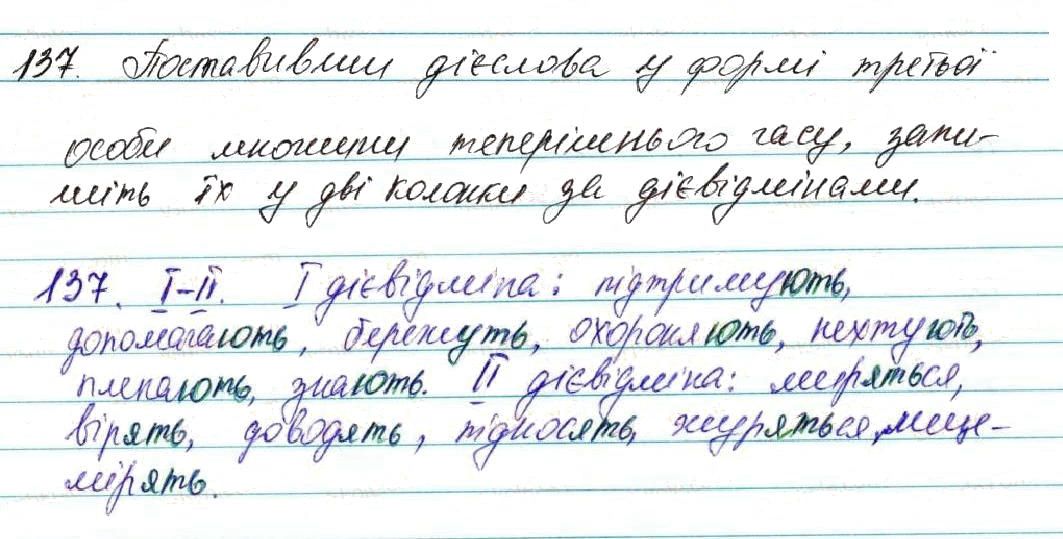 137. Поставивши дієслова у формі третьої
особи множини теперішнього часу, запи-
шіть їх у дві колонки за дієвідмінами.
137. I-II. I дієвідміна: підтримують,
допомагають, бережуть, охороняють, нехтують,
плекають, знають. II дієвідміна: миряться,
вірять, доводять, підносять, журяться, лице-
мірять.